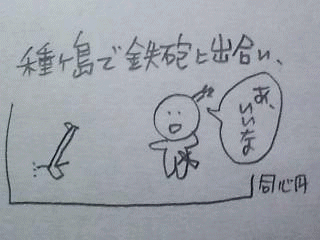 種ヶ島で鉄砲に出合い、
あ、
いいな
同心円